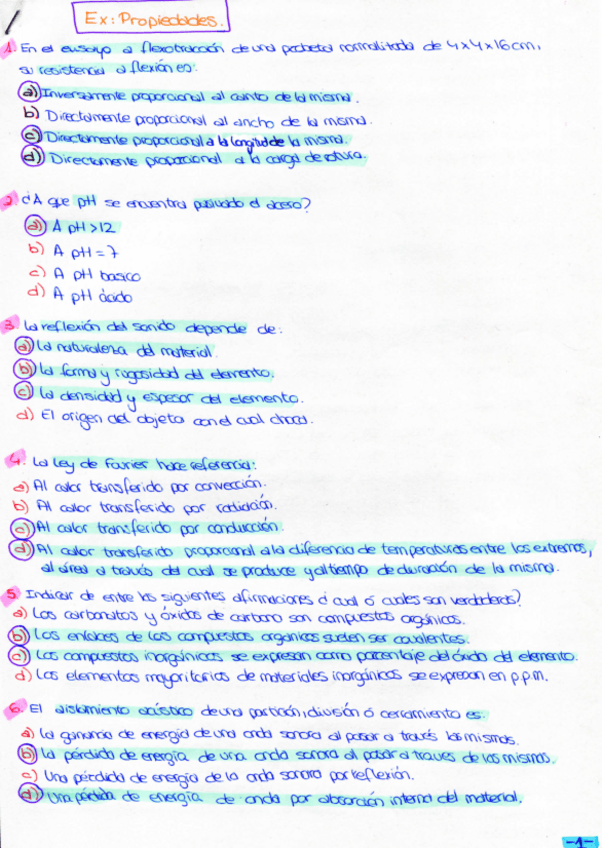 Ex: Propiedades.
1. En el ensayo a flexotracción de una probeta normalizada de 4x4x16cm,
su resistencia a flexión es:
a) Inversamente proporcional al canto de la misma.
b) Directamente proporcional al ancho de la misma.
c) Directamente proporcional a la longitud de la misma.
d) Directamente proporcional a la carga de rotura.
2. ¿A que pH se encuentra pasivado el acero?
a) A pH>12
b) A pH=7
c) A pH basico
d) A pH ácido
3. La reflexión del sonido depende de:
a) La naturaleza del material.
b) La forma y rugosidad del elemento.
c) La densidad y espesor del elemento.
d) El origen del objeto con el cual choca.
4. La Ley de Fourier hace referencia:
a) Al calor transferido por convección.
b) Al calor transferido por radiación.
c) Al calor transferido por conducción.
d) Al calor transferido proporcional a la diferencia de temperaturas entre los extremos,
al área a través del cual se produce y al tiempo de duración de la misma.
5. Indicar de entre las siguientes afirmaciones ¿cual ó cuales son verdaderas?
a) Los carbonatos y óxidos de carbono son compuestos orgánicos.
b) Los enlaces de los compuestos organicos suelen ser covalentes.
c) Los compuestos inorgánicos se expresan como porcentaje del óxido del elemento.
d) Los elementos mayoritarios de materiales inorgánicos se expresan en p.p.m.
6. El aislamiento acústico de una partición, división ó cerramiento es:
a) La ganancia de energía de una onda sonora al pasar a través las mismas.
b) La pérdida de energía de una onda sonora al pasar a traves de las mismas.
c) Una pérdida de energía de la onda sonora por reflexión.
d) Una pérdida de energía de onda por absorción interna del material.
-1-